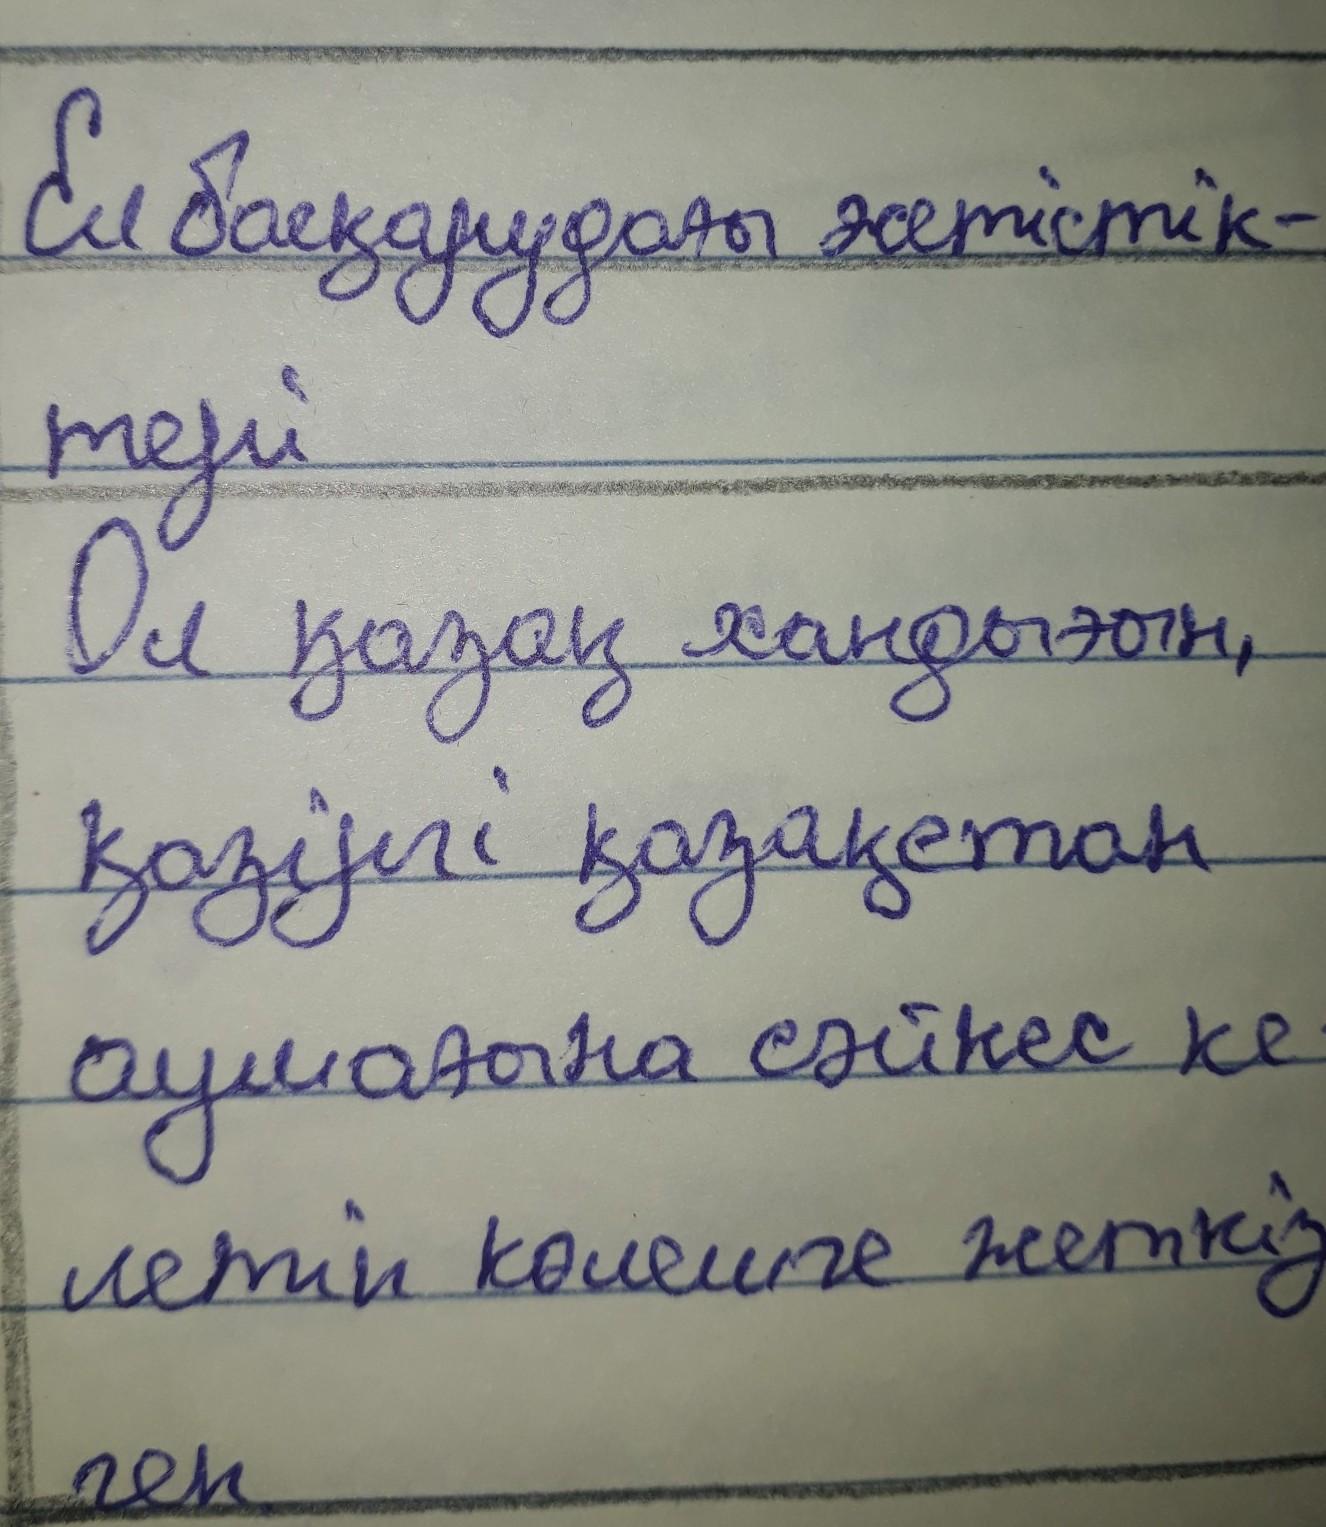 Ел басқарудағы жетістік-
тері
Ол қазақ хандығын,
қазіргі қазақстан
аумағына сәйкес ке-
летін көлемге жеткіз
ген.